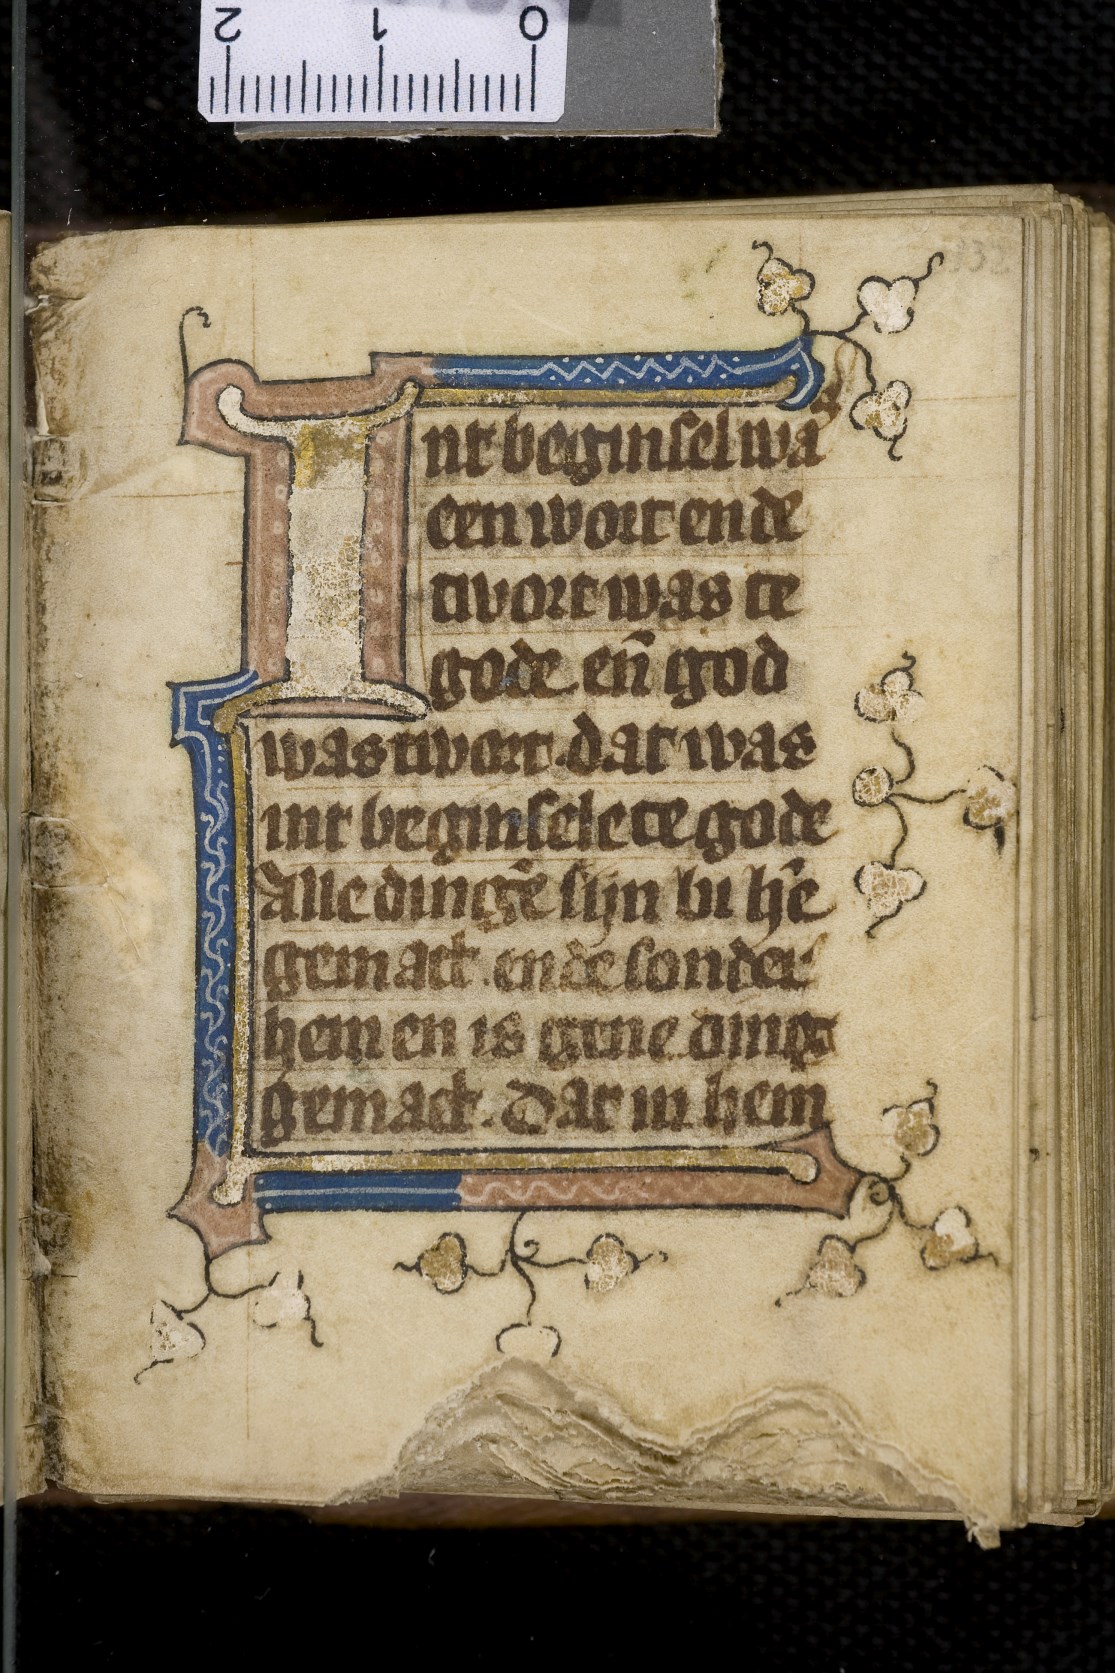 2 1 0
132
Int beginsel wa
s
een wort ende
twort was te
gode. en̄ god
was twort. dat was
int beginsele te gode
Alle dingē sijn bi hē
gemact. ende sonder
hem en is gene ding
gemact. Dat in hem